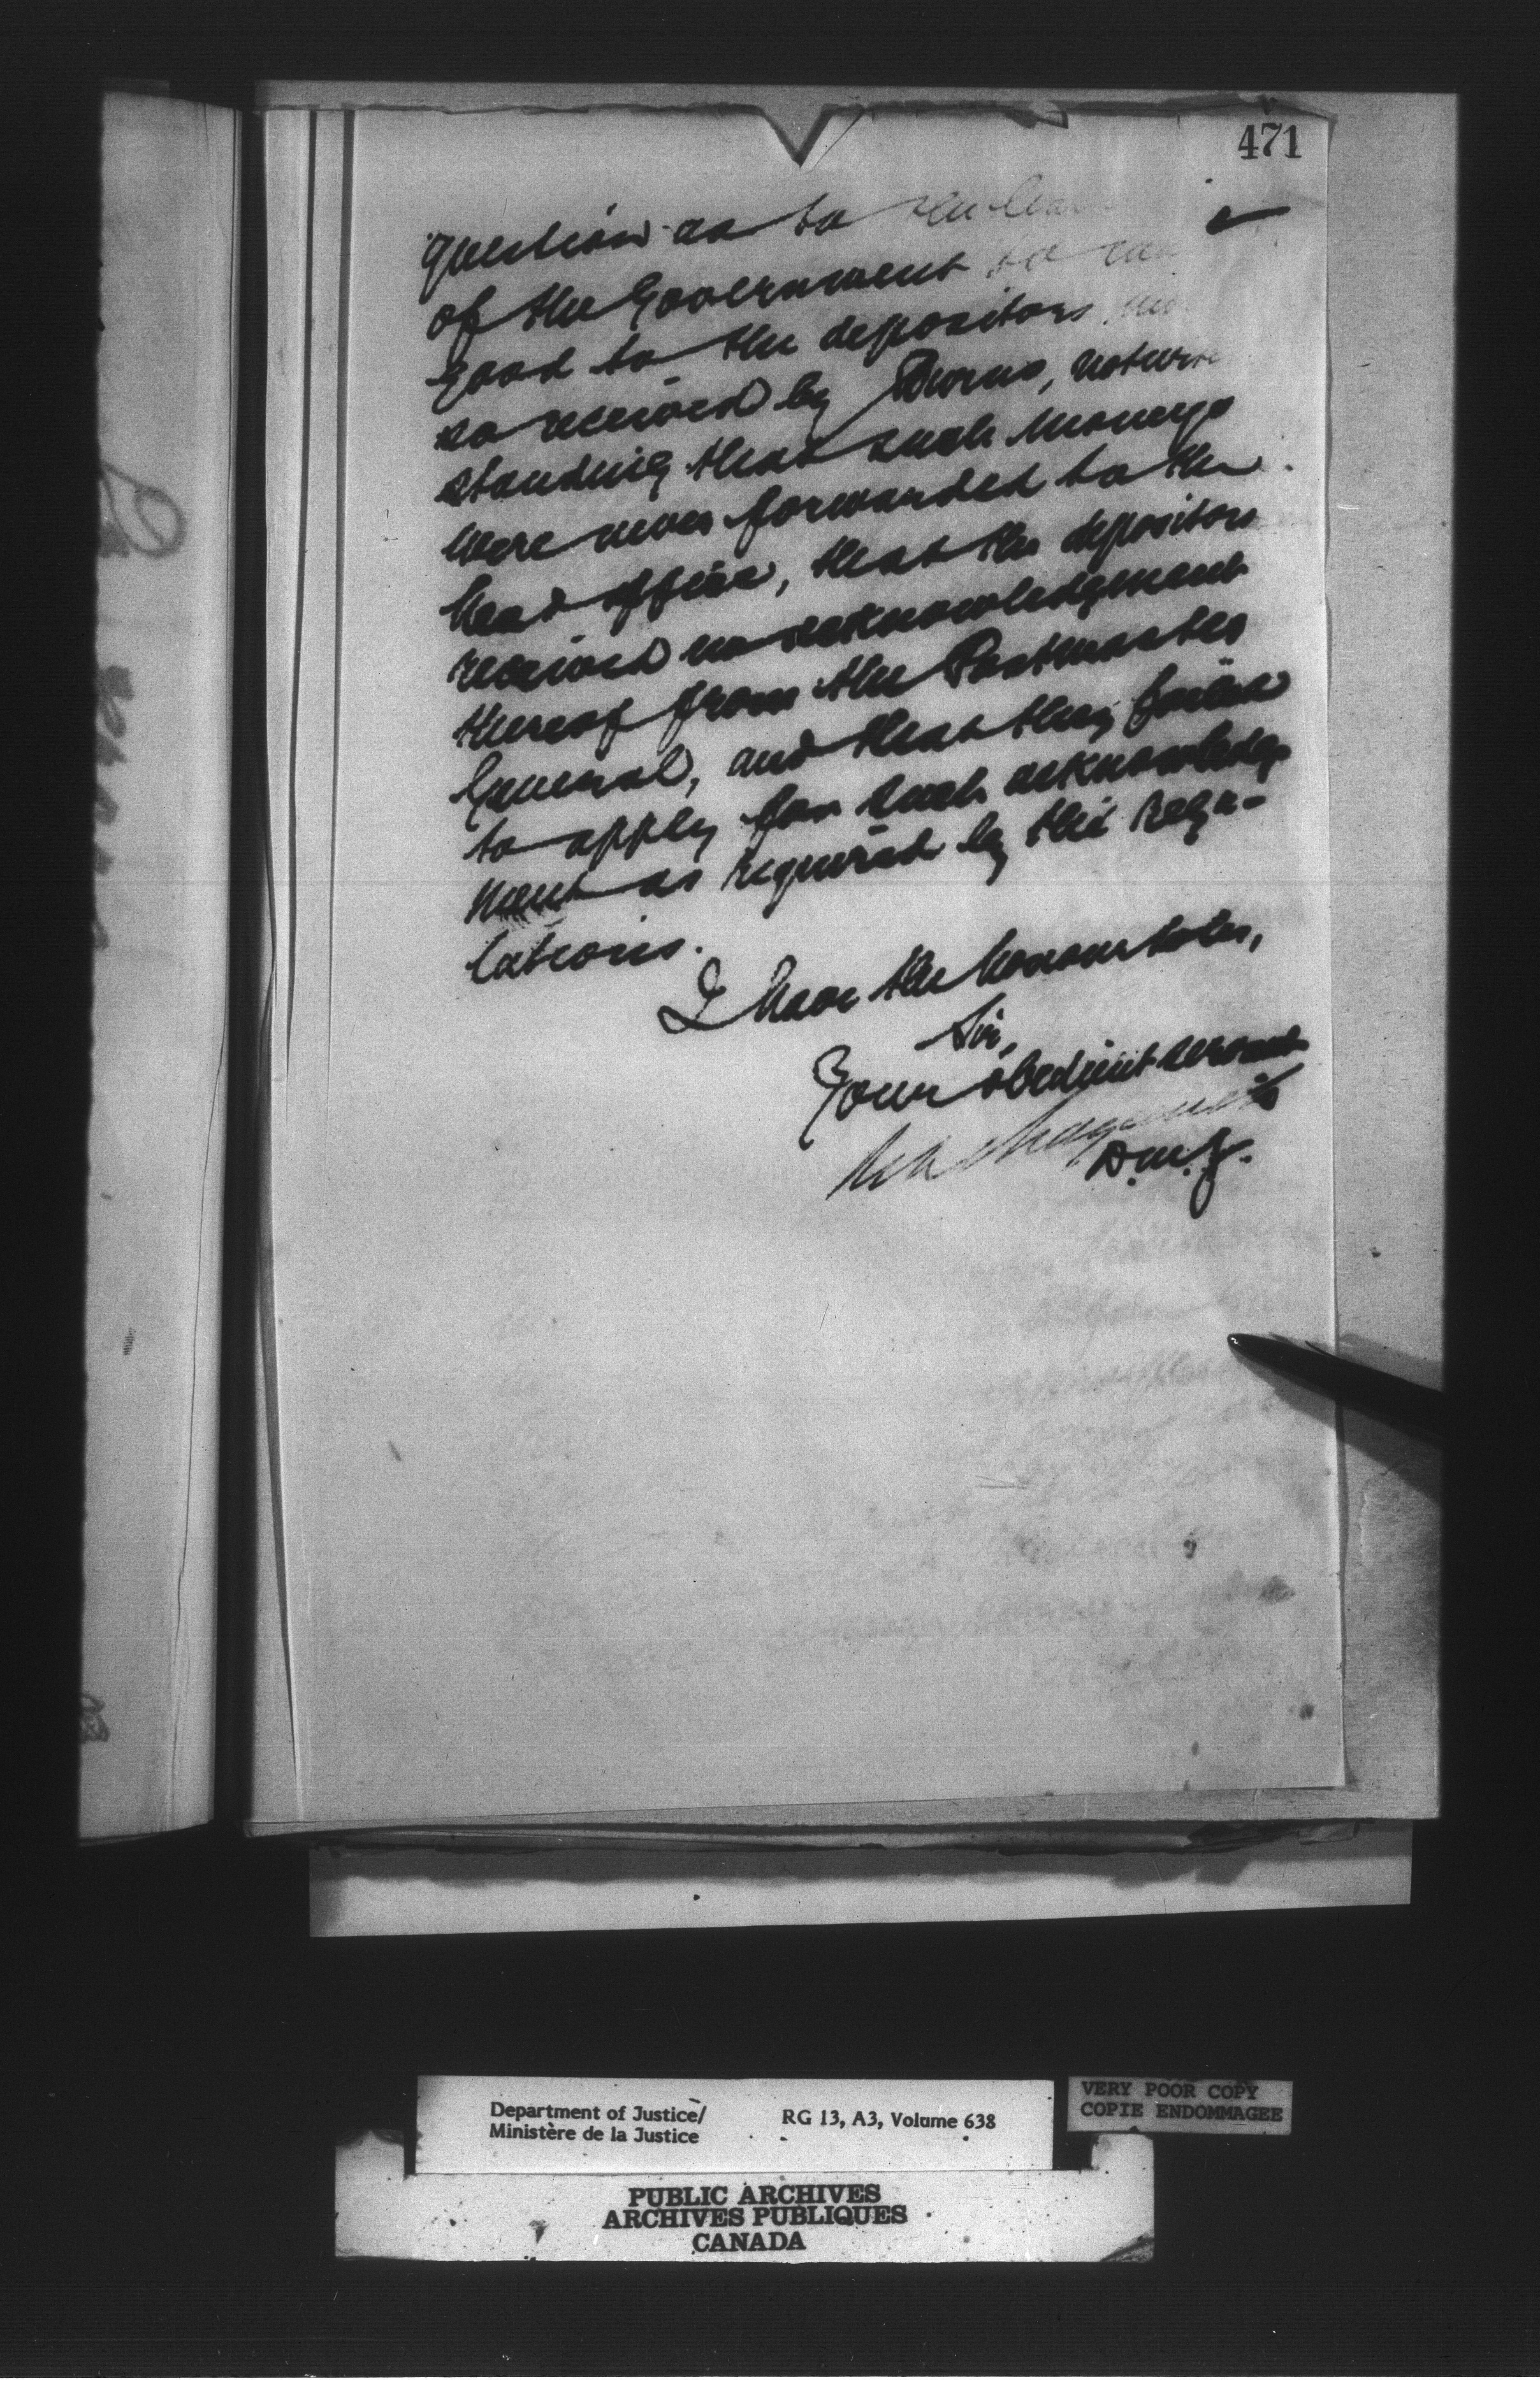 471
question as to the
of the Government to
good to the depositors
so received by Burns, notwith
standing that such moneys
were never forwarded to the
head office, that the depositors
received no acknowledgment
thereof from the Postmaster
General, and that they failed
to apply for such acknowledg
ment as required by the regu-
lations.
I have the honour to be,
Sir,
Your obedient servant
D.M.J.
Department of Justice/
Ministère de la Justice
RG 13, A3, Volume 638
VERY POOR COPY
COPIE ENDOMMAGEE
PUBLIC ARCHIVES
ARCHIVES PUBLIQUES
CANADA